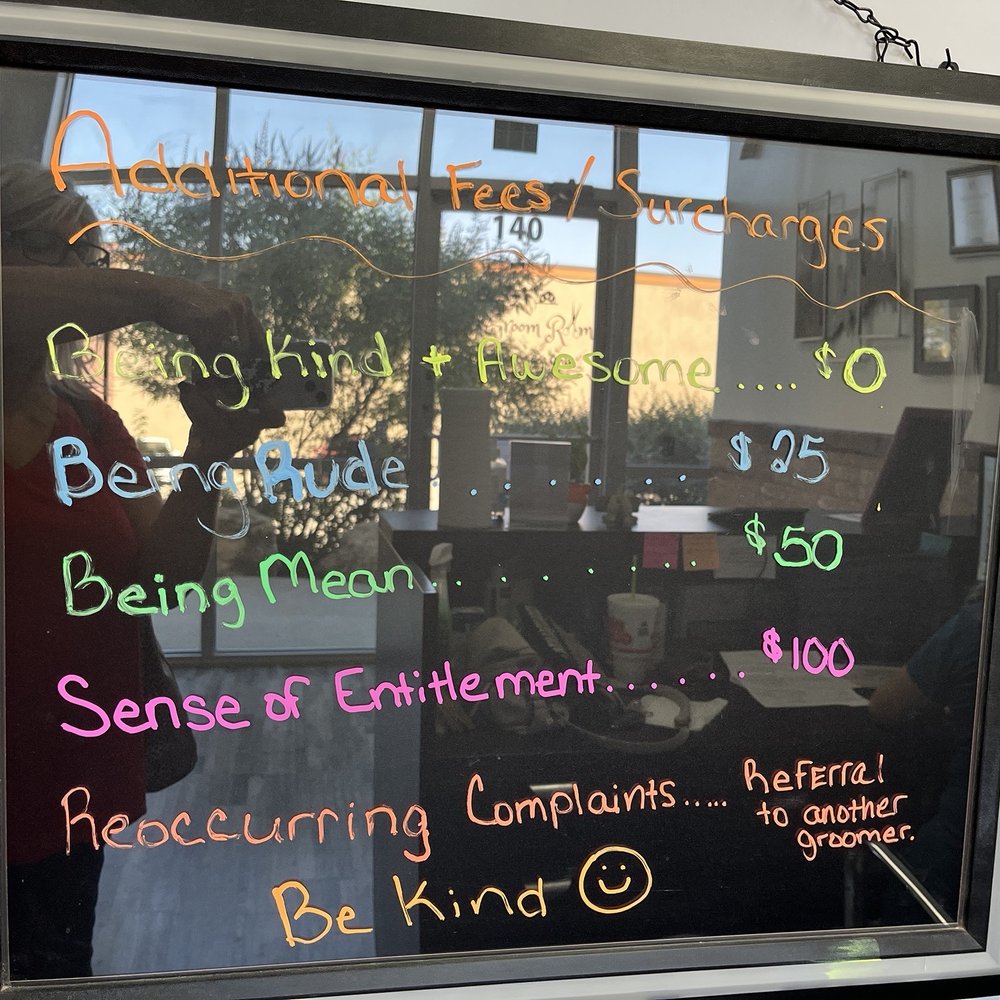 Additional Fees / Surcharges
140
Groom Room
Being Kind + Awesome.... $0
Being Rude ....... $25
Being Mean........ $50
Sense of Entitlement...... $100
Reoccurring Complaints..... Referral
to another
groomer.
Be Kind